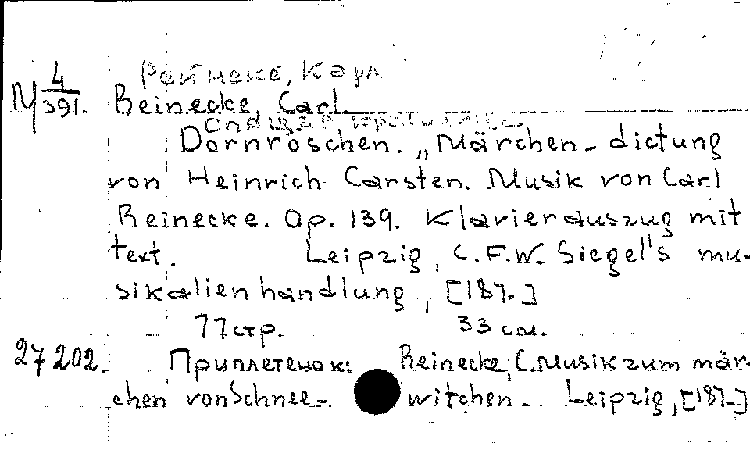 Рейнеке, Карл
М 4/391. Reinecke, Carl
Спящая красавица
Dornröschen. „Märchen-dictung
von Heinrich Carsten. Musik von Carl
Reinecke. Op. 139. Klavierauszug mit
text. Leipzig, C.F.W. Siegel's mu-
sikalienhandlung, [187-]
77 стр. 33 см.
27 202. Приплетено к: Reinecke, C. Musik zum mär-
chen von Schnee- witchen. Leipzig, [187-]